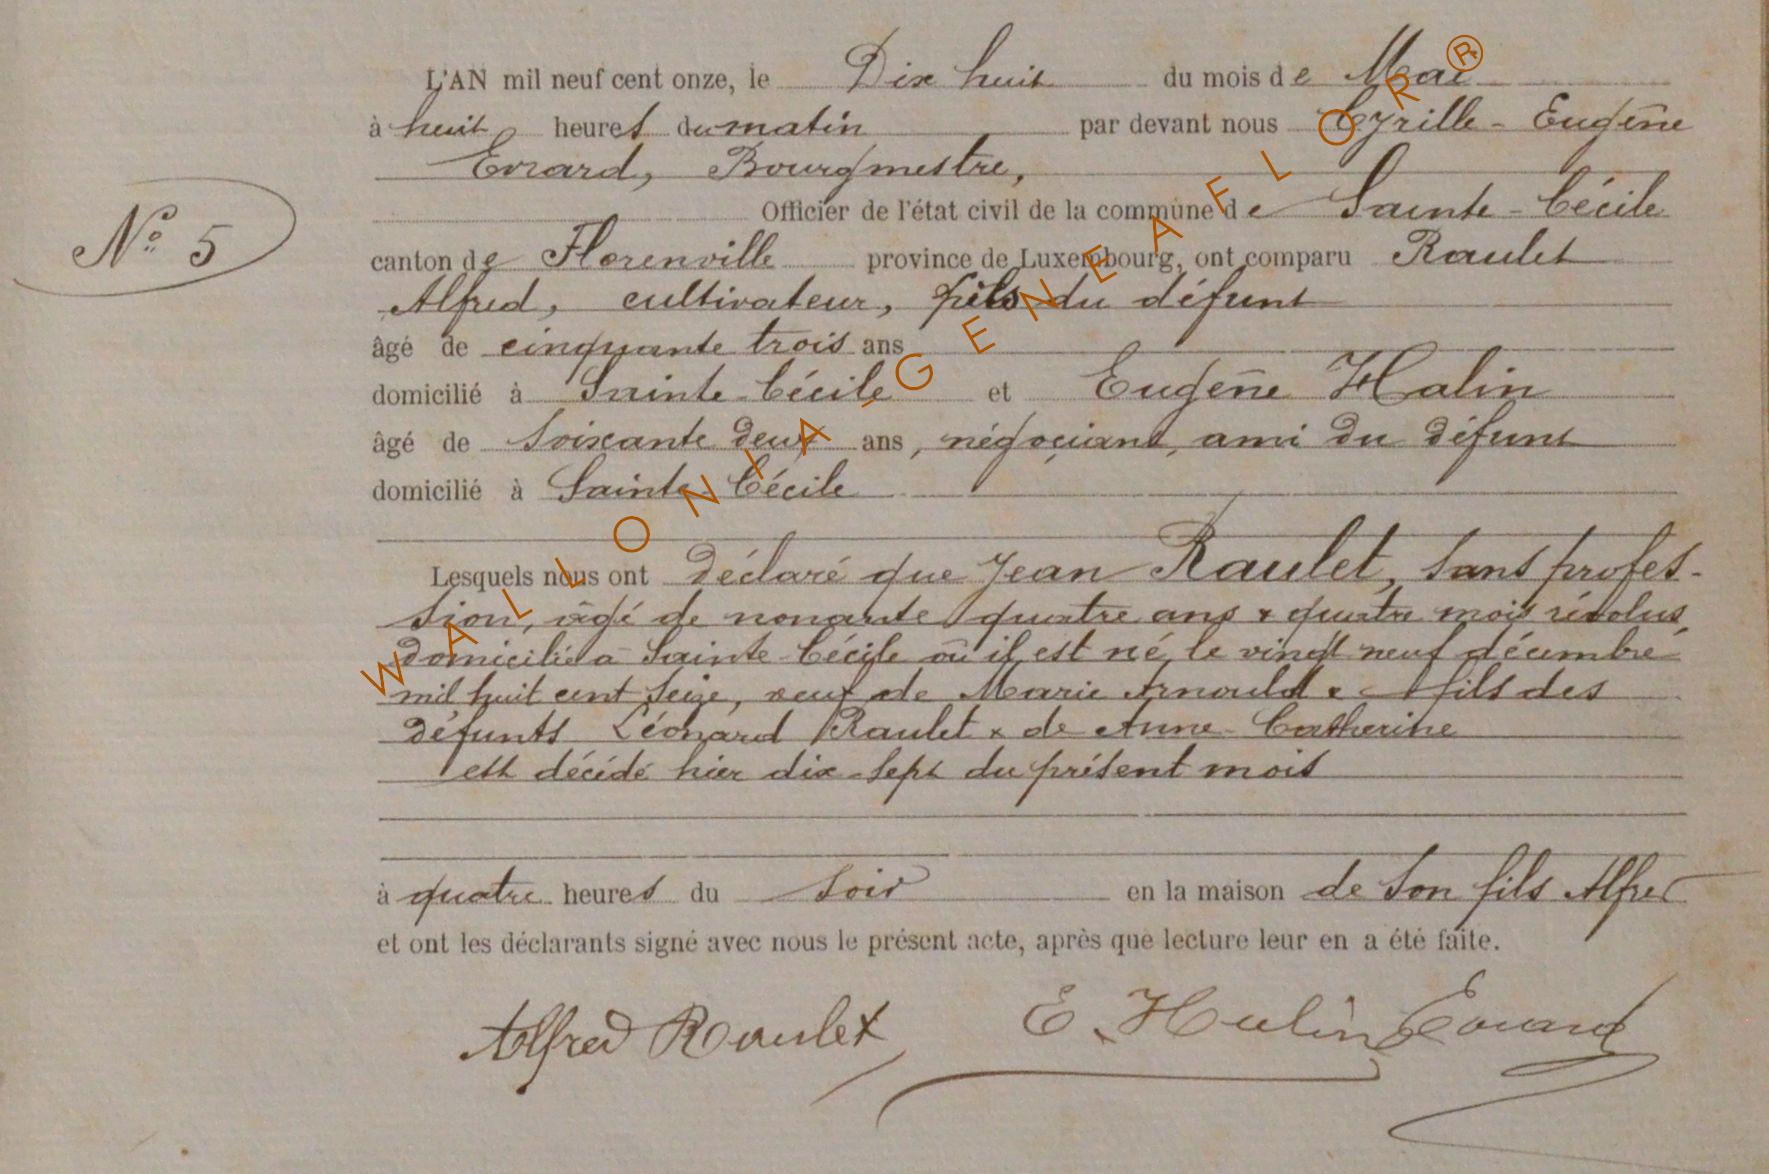 L'AN mil neuf cent onze, le Dix huit du mois de Mai
à huit heures du matin par devant nous Cyrille-Eugène
Evrard, Bourgmestre,
Officier de l'état civil de la commune de Sainte-Cécile
N° 5
canton de Florenville province de Luxembourg, ont comparu Raulet
Alfred, cultivateur, fils du défunt
âgé de cinquante trois ans
domicilié à Sainte-Cécile et Eugène Halin
âgé de soixante deux ans, négociant, ami du défunt
domicilié à Sainte-Cécile
Lesquels nous ont déclaré que Jean Raulet, sans profes-
sion, âgé de nonante quatre ans & quatre mois révolus,
domicilié à Sainte-Cécile où il est né, le vingt neuf décembre
mil huit cent seize, veuf de Marie Arnould & fils des
défunts Léonard Raulet & de Anne-Catherine
est décédé hier dix-sept du présent mois
à quatre heures du soir en la maison de son fils Alfred
et ont les déclarants signé avec nous le présent acte, après que lecture leur en a été faite.
Alfred Raulet E. Halin Evrard
WALLONIA-GENEAFLOR®